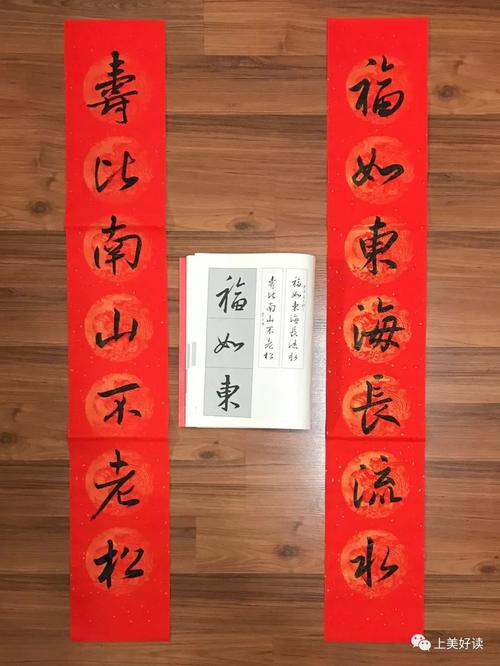 福如東海長流水
壽比南山不老松
福如東海長流水
壽比南山不老松
福如東
上美好读